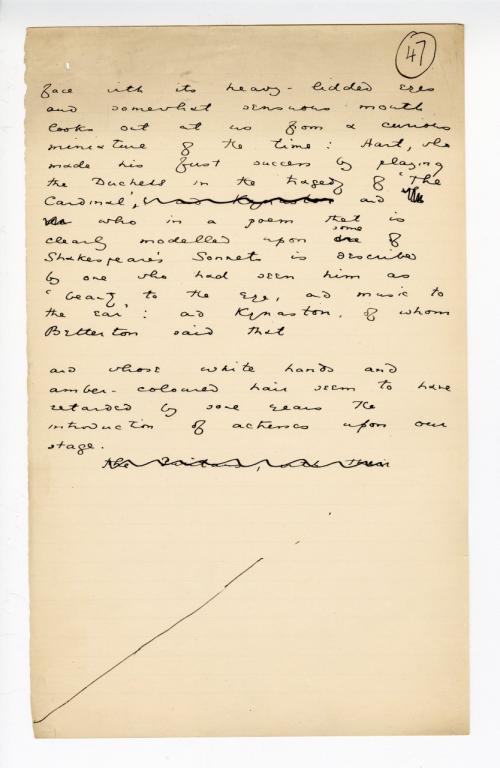 47
face with its heavy-lidded eyes
and somewhat sensuous mouth
looks out at us from a curious
miniature of the time: Hart, who
made his first success by playing
the Duchess in the tragedy of 'The
Cardinal', and Kynaston and
who in a poem that is
some
clearly modelled upon one of
Shakespeare's Sonnets is described
by one who had seen him as
'beauty to the eye, and music to
the ear': and Kynaston, of whom
Betterton said that
and whose white hands and
amber-coloured hair seem to have
retarded by some years the
introduction of actresses upon our
stage.
the